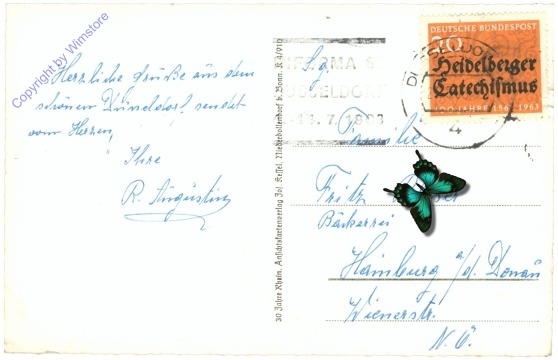 Copyright by Wimstore
Herzliche Grüße aus dem
schönen Düsseldorf sendet
vom Herzen,
Ihre
R. Augustin
30 Jahre Rhein. Ansichtskartenverlag Jos. Kessel, Niederdollendorf b. Bonn. K 4/910
DEUTSCHE BUNDESPOST
20
Heidelberger
Catechismus
400 JAHRE 1563 1963
4
Familie
Fritz
Bäckerei
Hainburg a/d. Donau
Wienerstr.
N.Ö.